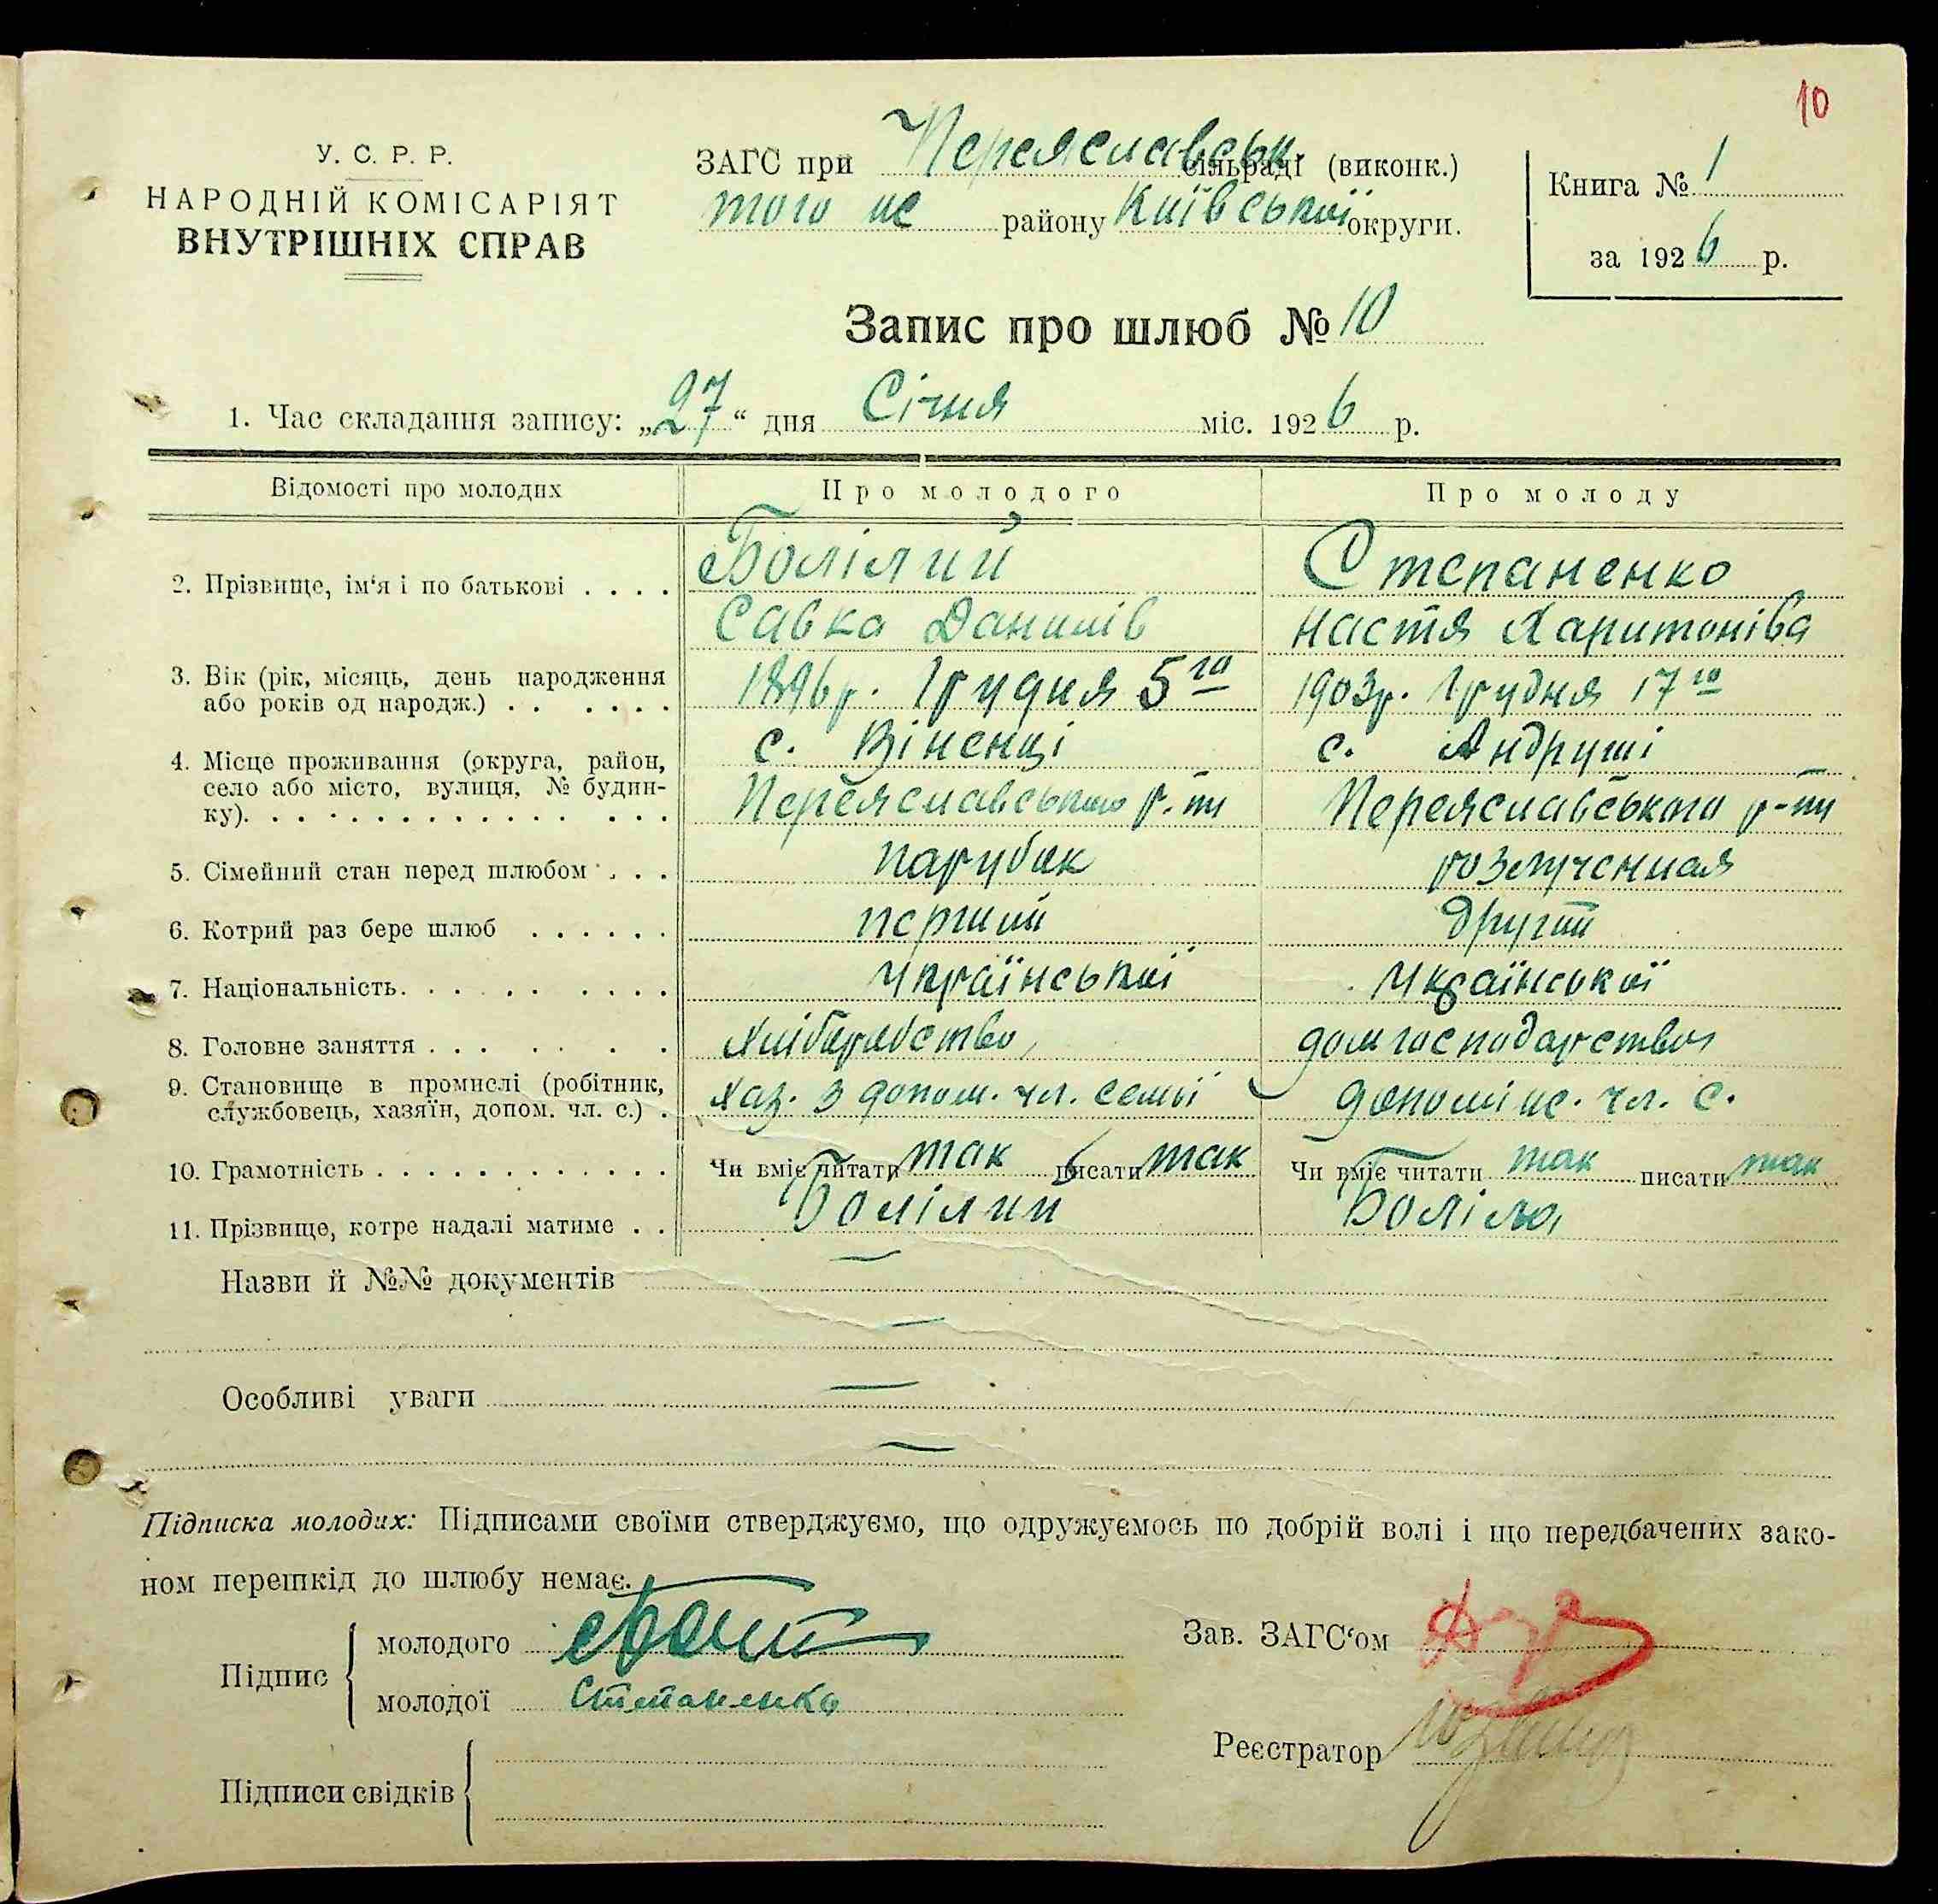 10
У. С. Р. Р.
НАРОДНІЙ КОМІСАРІЯТ
ВНУТРІШНІХ СПРАВ
ЗАГС при Переяславськ. сільраді (виконк.)
того ж району Київської округи.
Книга № 1
за 1926 р.
Запис про шлюб № 10
1. Час складання запису: „27“ дня Січня міс. 1926 р.
Відомості про молодих Про молодого Про молоду
2. Прізвище, ім‘я і по батькові . . . . Болілий Степаненко
Савка Данилів Настя Харитонівна
3. Вік (рік, місяць, день народження
або років од народж.) . . . . . . 1896р. Грудня 5го 1903р. Грудня 17го
4. Місце проживання (округа, район,
село або місто, вулиця, № будин-
ку). . . . . . . . . . . . . . . с. Віненці с. Андруші
Переяславського р-ну Переяславського р-ну
5. Сімейний стан перед шлюбом . . . парубак розлученная
6. Котрий раз бере шлюб . . . . . . перший другий
7. Національність. . . . . . . . . . Української Української
8. Головне заняття . . . . . . . хліборобство, дом господарство
9. Становище в промислі (робітник,
службовець, хазяїн, допом. чл. с.) . хаз. з допом. чл. семьї допоміж. чл. с.
10. Грамотність . . . . . . . . . . . . Чи вміє читати так писати так Чи вміє читати так писати так
11. Прізвище, котре надалі матиме . . Болілий Боліла
Назви й №№ документів —
—
Особливі уваги —
—
Підписка молодих: Підписами своїми стверджуємо, що одружуємось по добрій волі і що передбачених зако-
ном перешкід до шлюбу немає.
Підпис
молодого
молодої Степаненко
Зав. ЗАГС‘ом
Реєстратор
Підписи свідків